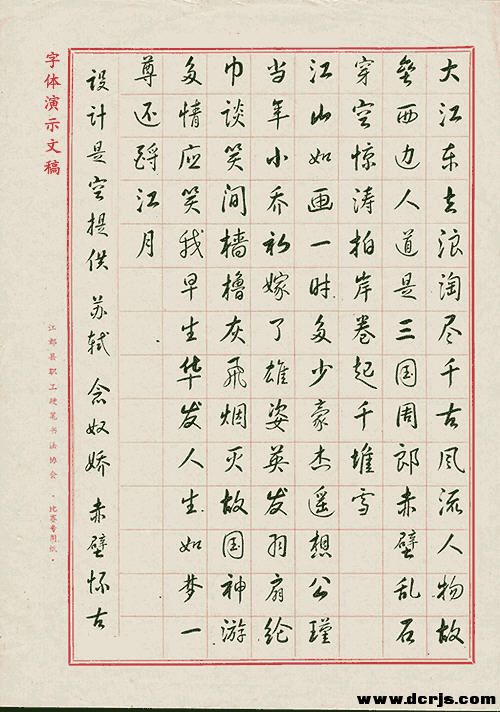 大江东去浪淘尽千古风流人物故
垒西边人道是三国周郎赤壁乱石
穿空惊涛拍岸卷起千堆雪
江山如画一时多少豪杰遥想公瑾
当年小乔初嫁了雄姿英发羽扇纶
巾谈笑间樯橹灰飞烟灭故国神游
多情应笑我早生华发人生如梦一
尊还酹江月
设计是空提供 苏轼 念奴娇 赤壁怀古
字体演示文稿
江都县职工硬笔书法协会·比赛专用纸·
www.dcrjs.com